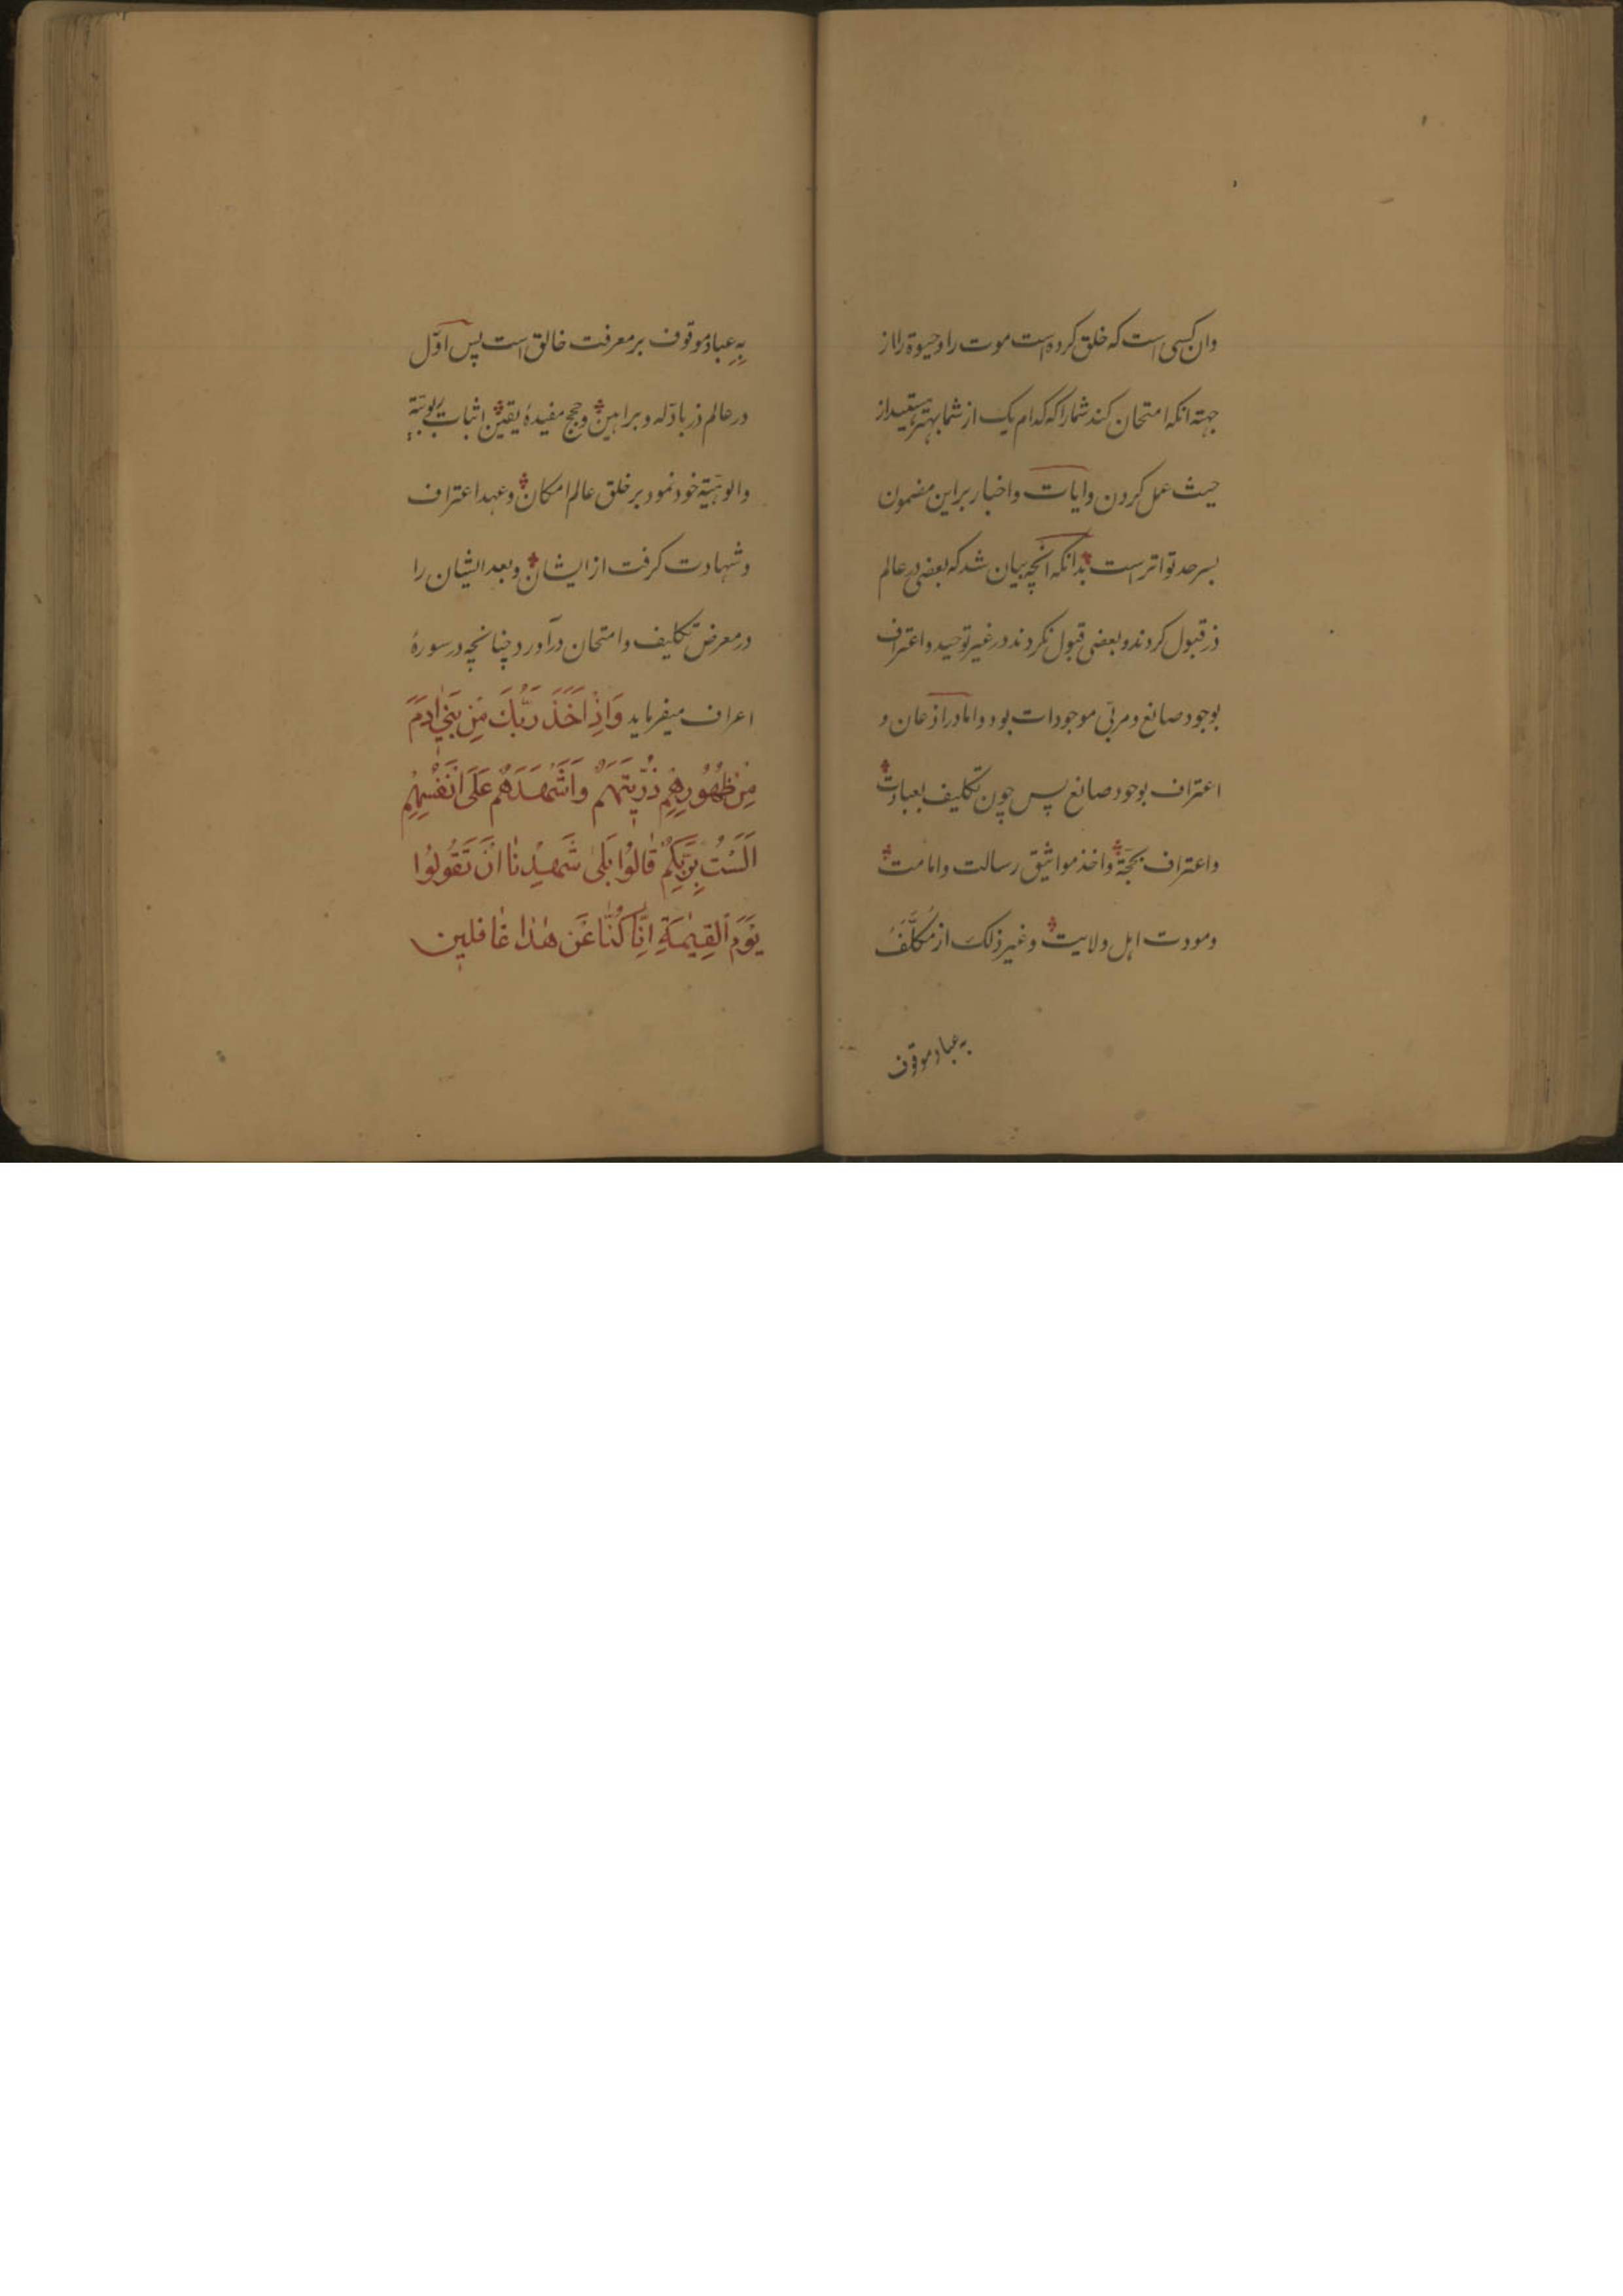 وان کسی است که خلق کرده است موت را و حیوة را از
جهته انکه امتحان کند شما را که کدام یک از شما بهتر هستید از
حیث عمل کردن وایات واخبار براین مضمون
بسر حد تواتر است بدانکه انچه بیان شد که بعضی در عالم
ذر قبول کردند و بعضی قبول نکردند در غیر توحید و اعتراف
بوجود صانع ومربّی موجودات بود واما در اذعان و
اعتراف بوجود صانع پس چون تکلیف بعبادت
واعتراف بحجّة واخذ مواثیق رسالت وامامت
ومودت اهل ولایت وغیر ذلک از مُکلَّفُ
به عباد موقوف
بِهِ عباد موقوف بر معرفت خالق است پس اوّل
در عالم ذر بادّله وبراهین وحجج مفیدهٔ یقین اثبات ربوبیّة
والوهیّة خود نمود بر خلق عالم امکان وعهد اعتراف
وشهادت کرفت از ایشان وبعد ایشان را
در معرض تکلیف وامتحان درآورد چنانچه در سورهٔ
اعراف میفرماید وَاِذْ اَخَذَ رَبُّكَ مِنْ بَنِي اٰدَمَ
مِنْ ظُهُورِهِمْ ذُرِّيَّتَهُمْ وَاَشْهَدَهُمْ عَلٰى اَنْفُسِهِمْ
اَلَسْتُ بِرَبِّكُمْ قٰالُوْا بَلىٰ شَهِدْنٰا اَنْ تَقُولُوْا
يَوْمَ الْقِيٰمَةِ اِنّٰا كُنّٰا عَنْ هٰذٰا غٰافلين